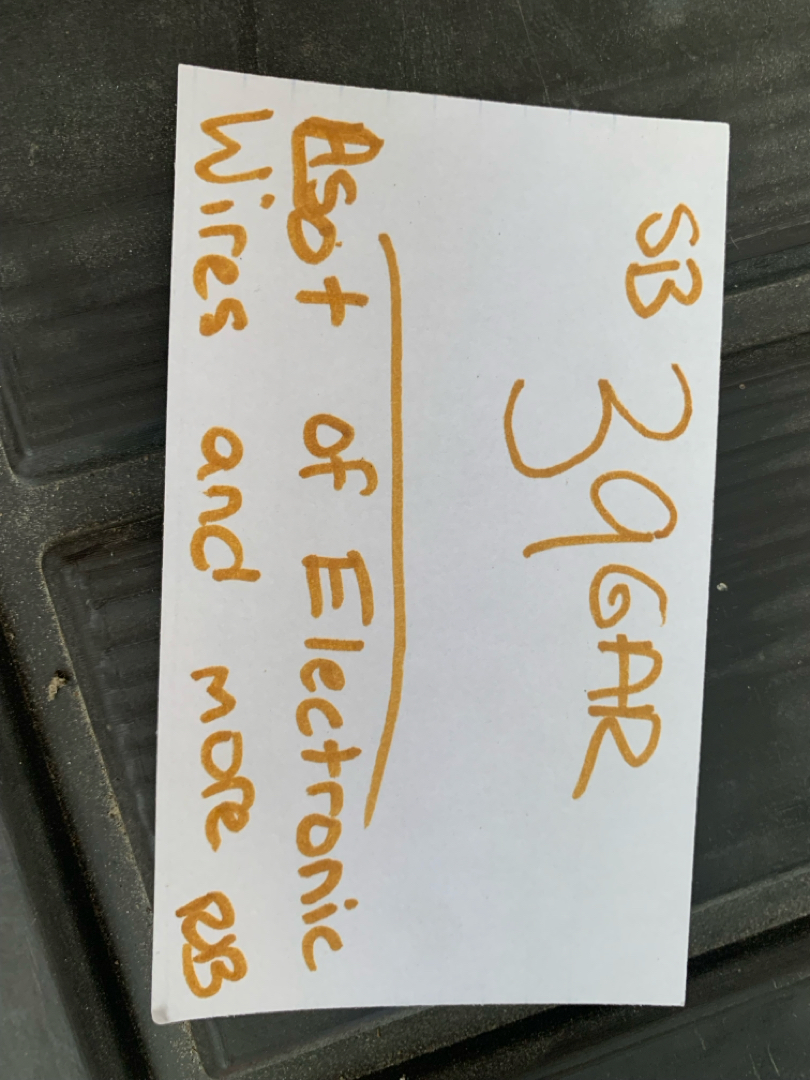 SB 39 GAR
Asot of Electronic
Wires and more RB